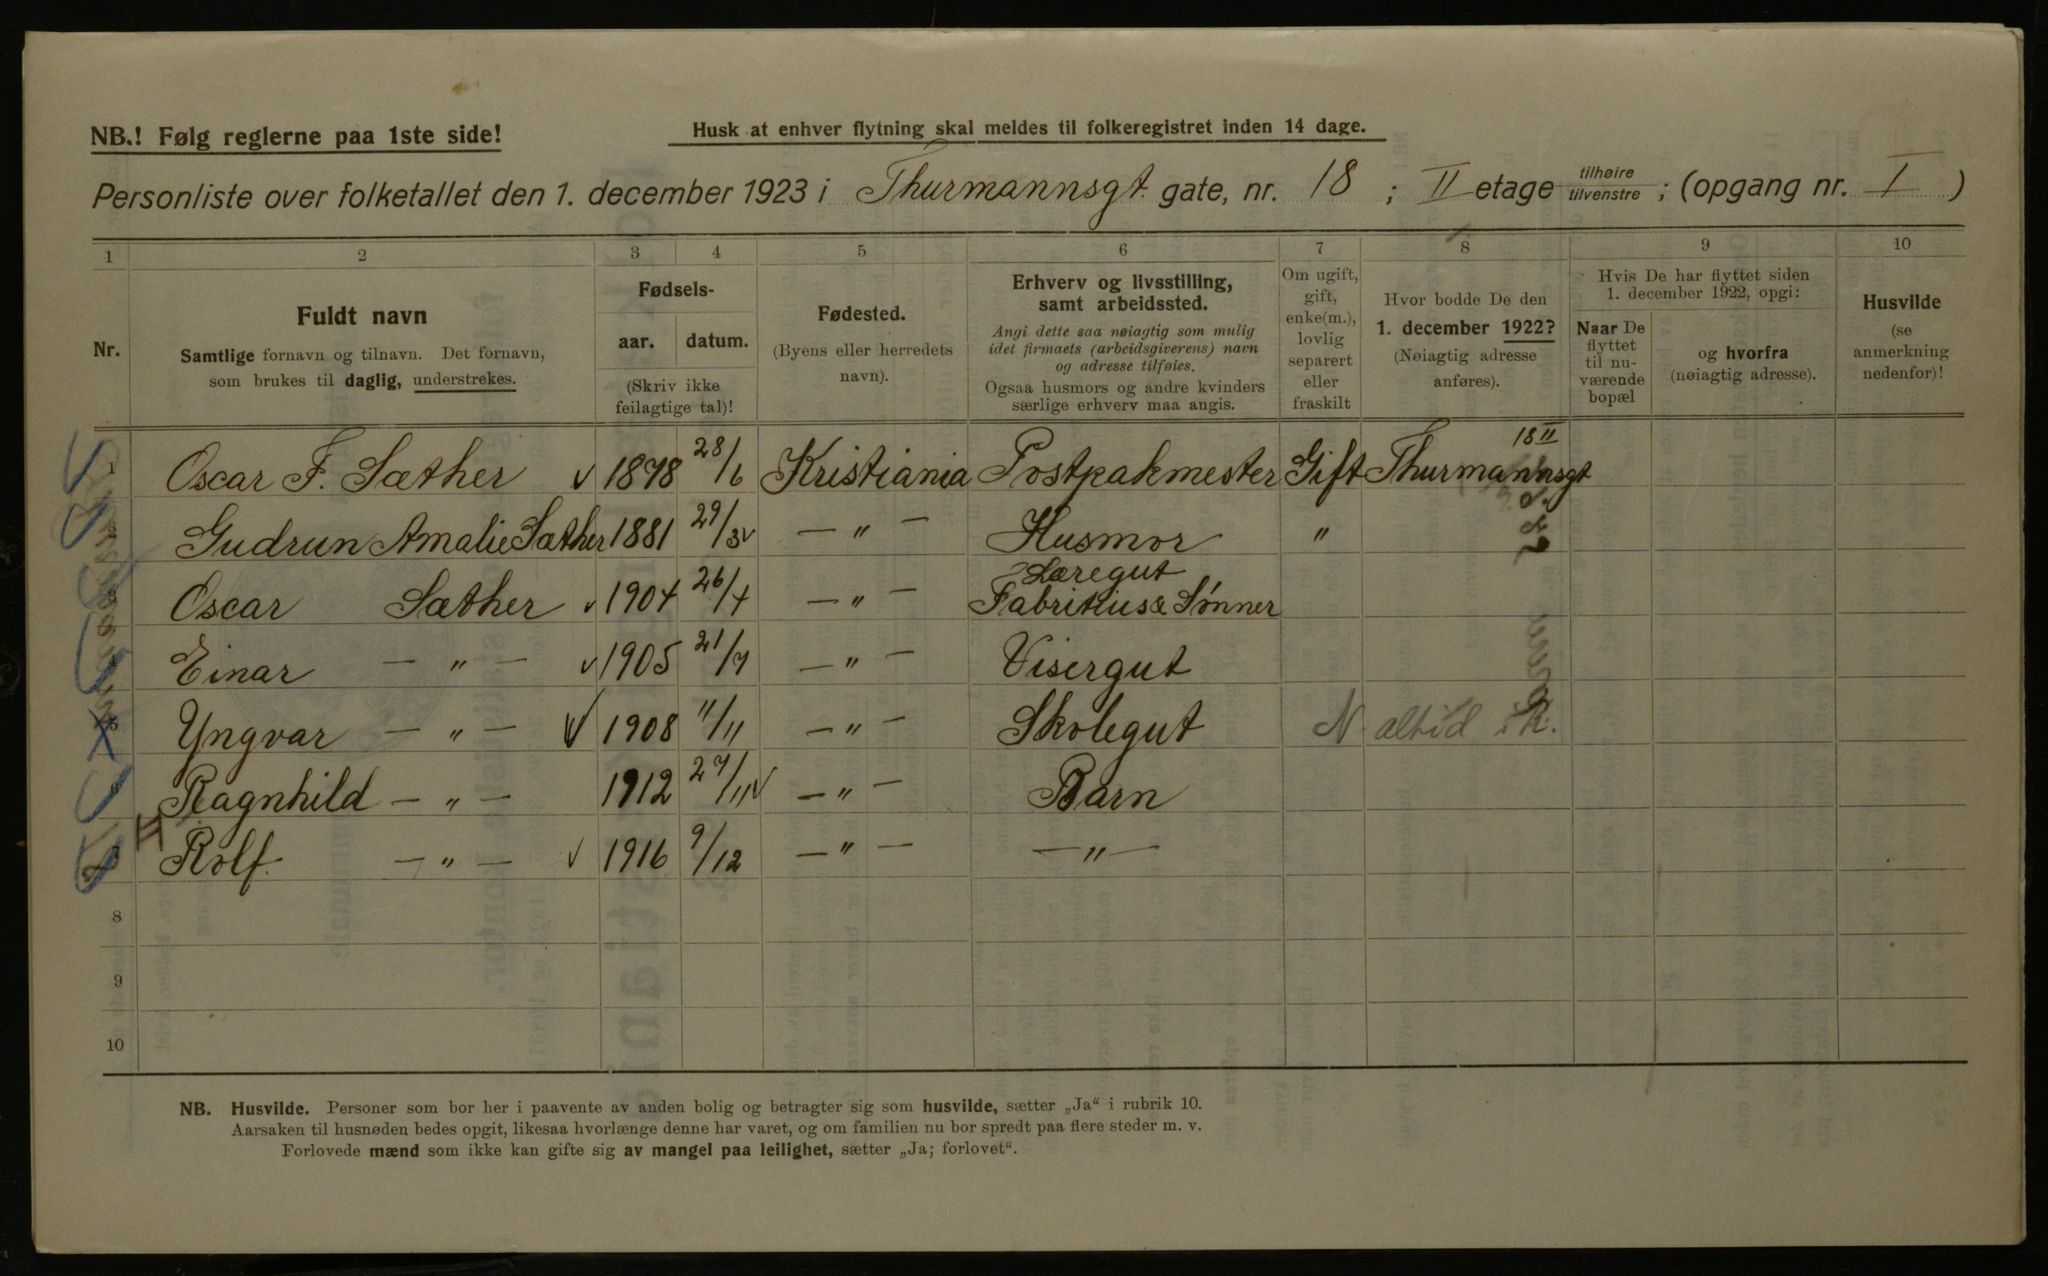 NB.! Følg reglerne paa 1ste side!
Husk at enhver flytning skal meldes til folkeregistret inden 14 dage.
Personliste over folketallet den 1. december 1923 i Thurmannsgt. gate, nr. 18 ; II etage tilhøire tilvenstre ; (opgang nr. I )
1 2 3 4 5 6 7 8 9 10
Nr.
Fuldt navn
Samtlige fornavn og tilnavn. Det fornavn,
som brukes til daglig, understrekes.
Fødsels-
aar. datum.
(Skriv ikke
feilagtige tal)!
Fødested.
(Byens eller herredets
navn).
Erhverv og livsstilling,
samt arbeidssted.
Angi dette saa nøiagtig som mulig
idet firmaets (arbeidsgiverens) navn
og adresse tilføies.
Ogsaa husmors og andre kvinders
særlige erhverv maa angis.
Om ugift,
gift,
enke(m.),
lovlig
separert
eller
fraskilt
Hvor bodde De den
1. december 1922?
(Nøiagtig adresse
anføres).
Hvis De har flyttet siden
1. december 1922, opgi:
Naar De
flyttet
til nu-
værende
bopæl
og hvorfra
(nøiagtig adresse).
Husvilde
(se
anmerkning
nedenfor)!
1 Oscar F. Sæther 1878 28/6 Kristiania Postpakmester Gift Thurmannsgt 18 II
2 Gudrun Amalie Sæther 1881 29/3 — " — Husmor "
3 Oscar Sæther 1904 26/4 — " — Læregut
Fabritius & Sønner
4 Einar — " — 1905 21/7 — " — Visergut
5 Yngvar — " — 1908 11/11 — " — Skolegut N. altid i K.
6 Ragnhild — " — 1912 27/11 — " — Barn
Rolf. — " — 1916 9/12 — " — — " —
8
9
10
NB. Husvilde. Personer som bor her i paavente av anden bolig og betragter sig som husvilde, sætter „Ja“ i rubrik 10.
Aarsaken til husnøden bedes opgit, likesaa hvorlænge denne har varet, og om familien nu bor spredt paa flere steder m. v.
Forlovede mænd som ikke kan gifte sig av mangel paa leilighet, sætter „Ja; forlovet“.